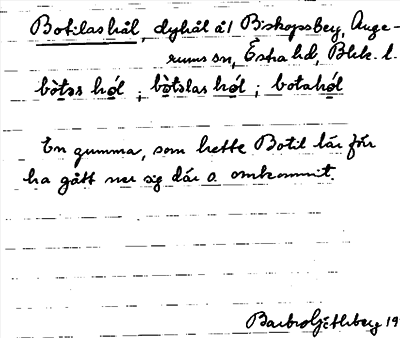 Botilashål, dyhål å/ Biskopsbeg, Ange-
rums sn, Östra hd, Blek. l.
bòtəs hól ; bòtəlas hól ; botahól
En gumma, som hette Botil lär för
ha gått ner sig där o. omkommit.
Barbro 19